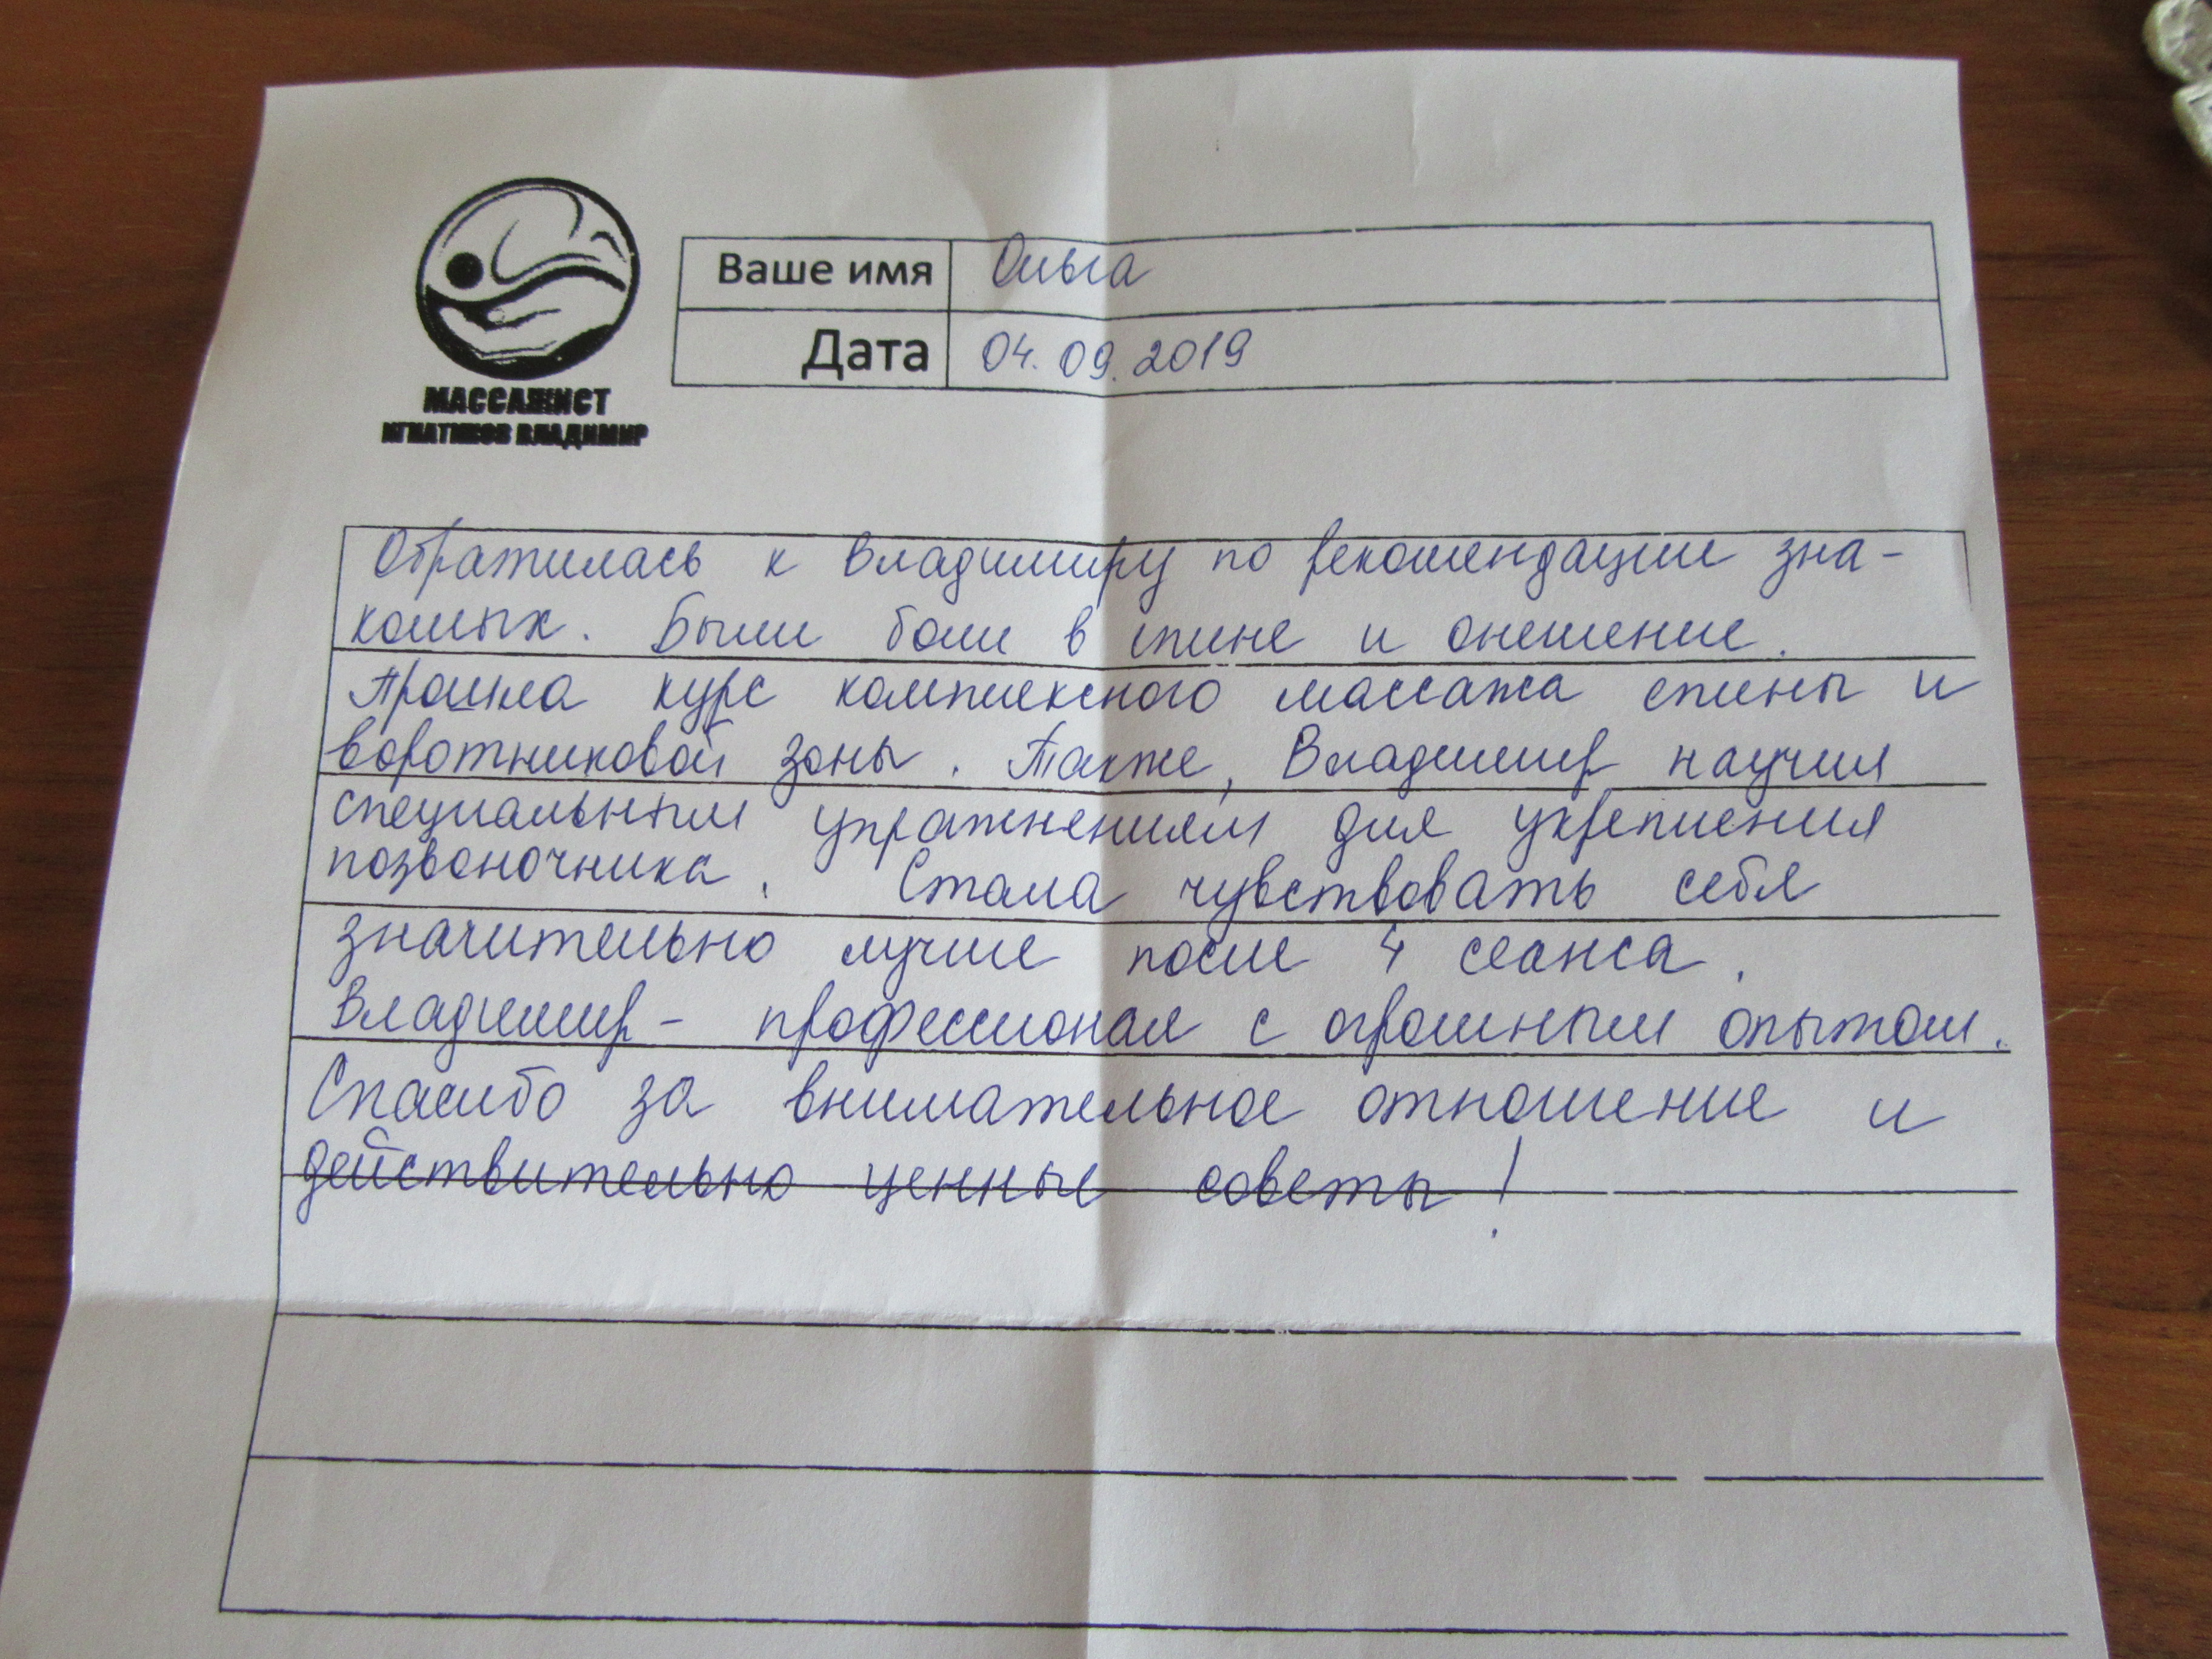 Ваше имя Ольга
Дата 04.09.2019
МАССАЖИСТ
ИГНАТИКОВ ВЛАДИМИР
Обратилась к Владимиру по рекомендации зна-
комых. Были боли в спине и онемение.
Прошла курс комплексного массажа спины и
воротниковой зоны. Также, Владимир научил
специальным упражнениям для укрепления
позвоночника. Стала чувствовать себя
значительно лучше после 4 сеанса.
Владимир – профессионал с огромным опытом.
Спасибо за внимательное отношение и
действительно ценные советы!